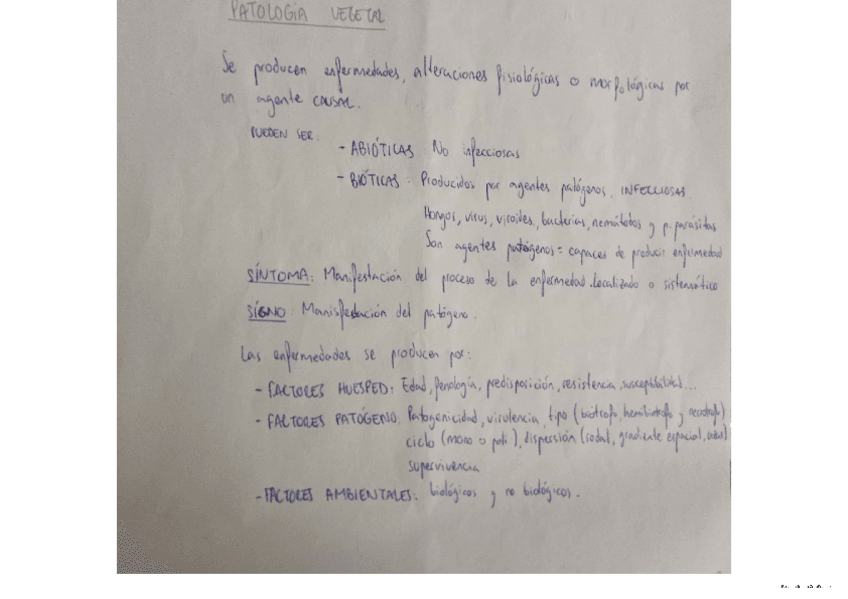 PATOLOGÍA VEGETAL
Se producen enfermedades, alteraciones fisiológicas o morfológicas por
un agente CAUSAL.
PUEDEN SER:
- ABIÓTICAS: No infecciosas
- BIÓTICAS: Producidos por agentes patógenos. INFECCIOSAS.
Hongos, virus, viroides, bacterias, nemátodos y p. parásitas
Son agentes patógenos = capaces de producir enfermedad
SÍNTOMA: Manifestación del proceso de la enfermedad. Localizado o sistemático
SIGNO: Manisfestación del patógeno.
Las enfermedades se producen por:
- FACTORES HUESPED: Edad, fenología, predisposición, resistencia, susceptibilidad...
- FACTORES PATÓGENO: Patogenicidad, virulencia, tipo (biotrofo, hemibiotrofo y necrotrofo)
ciclo (mono o poli), dispersión (rodal, gradiente espacial,
supervivencia
- FACTORES AMBIENTALES: biológicos y no biológicos.